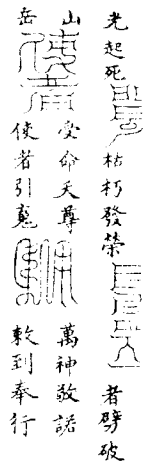 光起死枯朽發榮者劈破
山受命天尊萬神敬諾
岳使者引魂敕到奉行